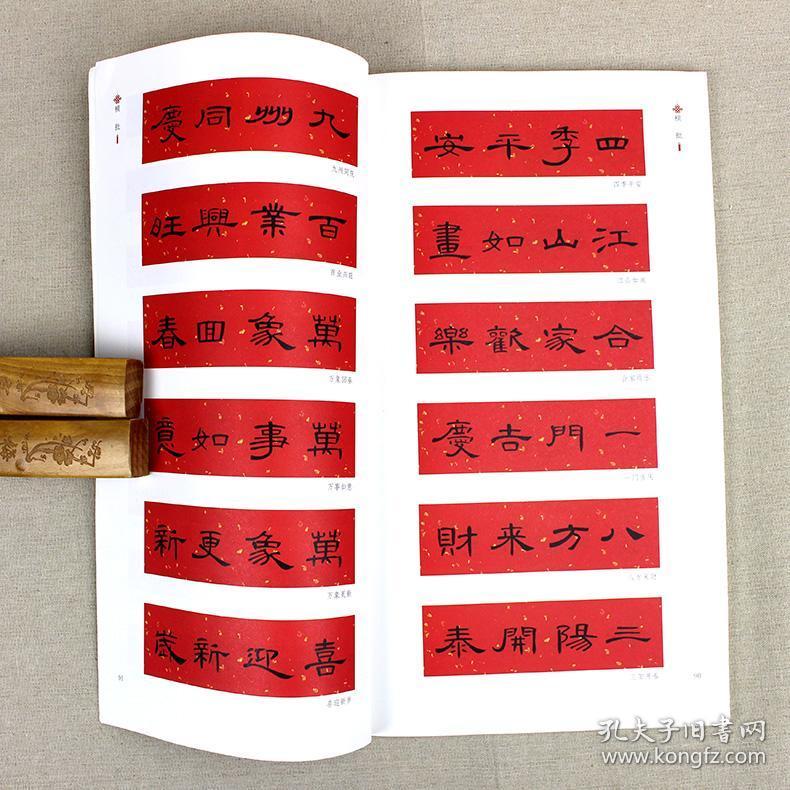 横批
四季平安
四季平安
江山如畫
江山如画
合家歡樂
合家欢乐
一門吉慶
一门吉庆
八方来財
八方来财
三陽開泰
三阳开泰
90
横批
九州同慶
九州同庆
百業興旺
百业兴旺
萬象回春
万象回春
萬事如意
万事如意
萬象更新
万象更新
喜迎新歲
喜迎新岁
91
孔夫子旧书网
www.kongfz.com